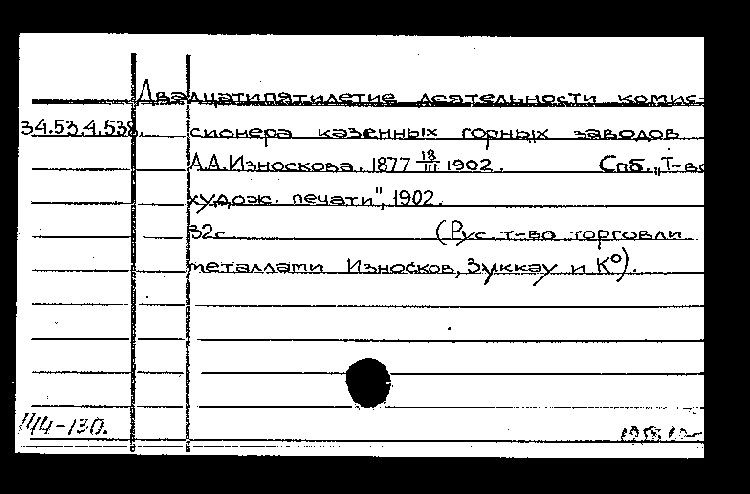 Двадцатипятилетие деятельности комис-
34.53.4.538. сионера казенных горных заводов
А.А.Износкова. 1877 18/III 1902. Спб., "Т-во
худож. печати", 1902.
32с. (Рус. т-во торговли
металлами Износков, Зуккау и К°).
144-130.